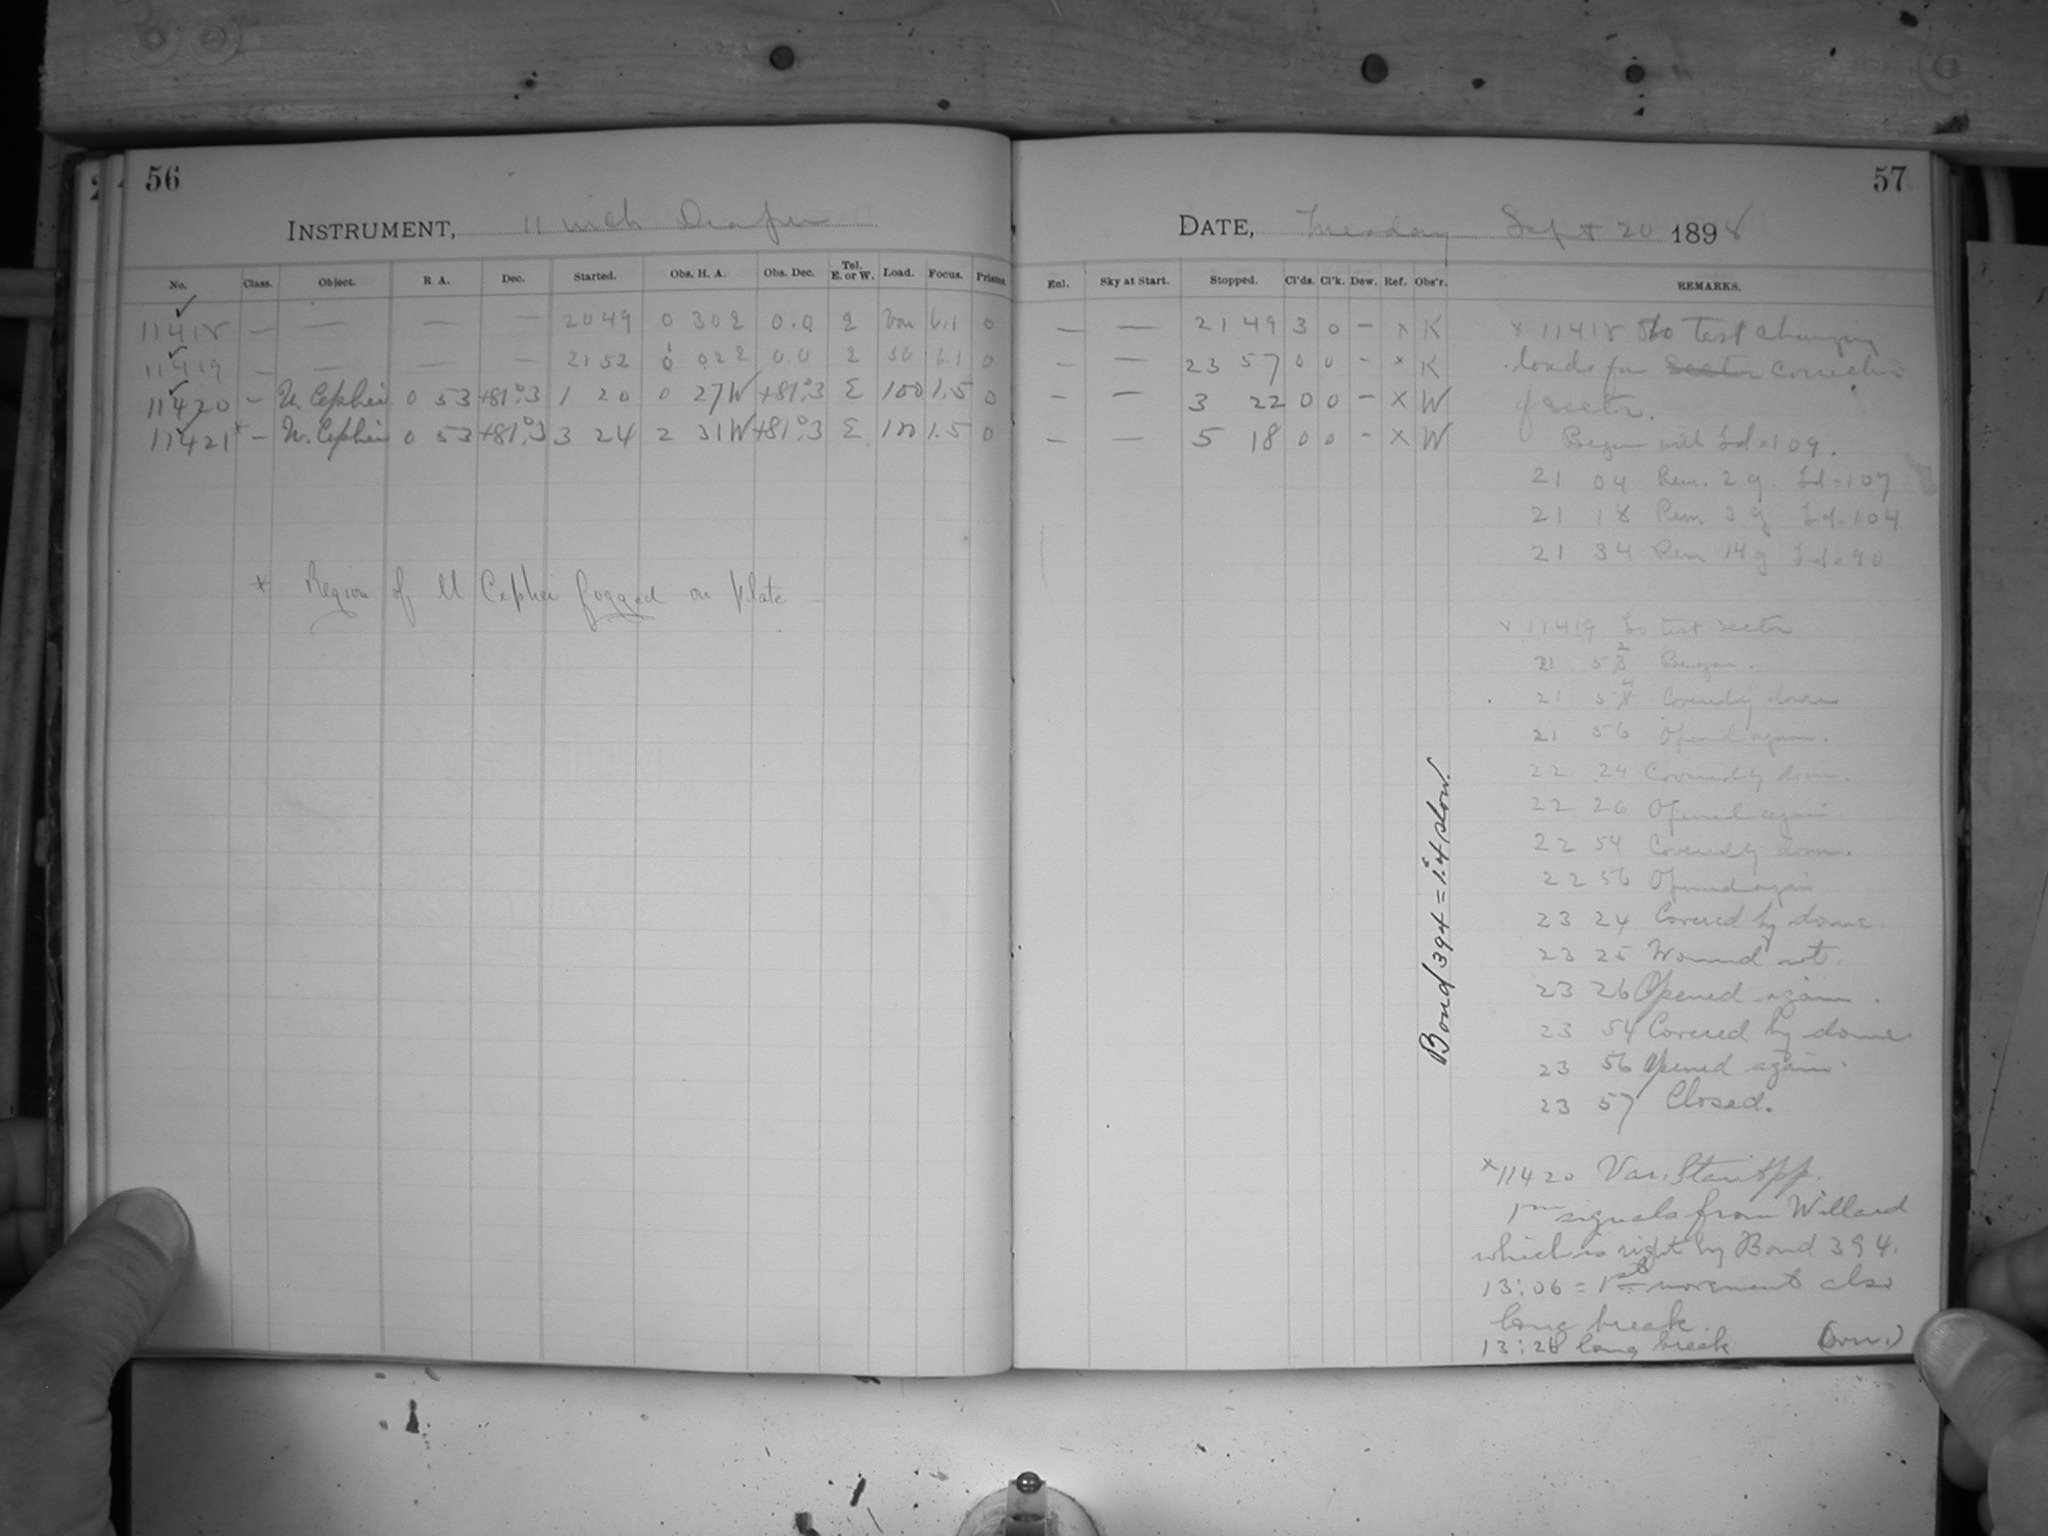 56
INSTRUMENT, 11 inch Draper
No. Class. Object. R. A. Dec. Started. Obs. H. A. Obs. Dec. Tel. E. or W. Load. Focus. Prisms
11418 — — — — 20 49 0 30 E 0.0 E Var 6.1 0
11419 — — — — 21 52 0 02 E 0.0 E 50 6.1 0
11420 — U. Cephei 0 53 +81°.3 1 20 0 27 W +81°.3 E 100 1.5 0
11421* — U. Cephei 0 53 +81°.3 3 24 2 31 W +81°.3 E 100 1.5 0
* Region of U Cephei fogged on plate —
57
DATE, Tuesday Sept 20 1898
Enl. Sky at Start. Stopped. Cl'ds. Cl'k. Dew. Ref. Obs'r. REMARKS.
— — 21 49 3 0 – x K
— — 23 57 0 0 – x K
— — 3 22 0 0 – x W
— — 5 18 0 0 – x W
x 11418 To test changing
loads for Sector correction
of sector.
Began with Ld = 109.
21 04 Rem. 2 g. Ld = 107
21 18 Rem 3 g Ld. 104
21 34 Rem 14 g Ld = 90
x 11419 To test sector
21 52 Began.
21 54 Covered by dome
21 56 Opened again.
22 24 Covered by dome.
22 26 Opened again.
22 54 Covered by dome.
22 56 Opened again
23 24 Covered by dome.
23 25 Wound wt.
23 26 Opened again.
23 54 Covered by dome
23 56 Opened again.
23 57 Closed.
x 11420 Var. Star App.
1m signals from Willard
which is right by Bond 394.
13:06 = 1st movement also
long break.
13:28 long break (over.)
Bond 394 = 1s.4 slow.